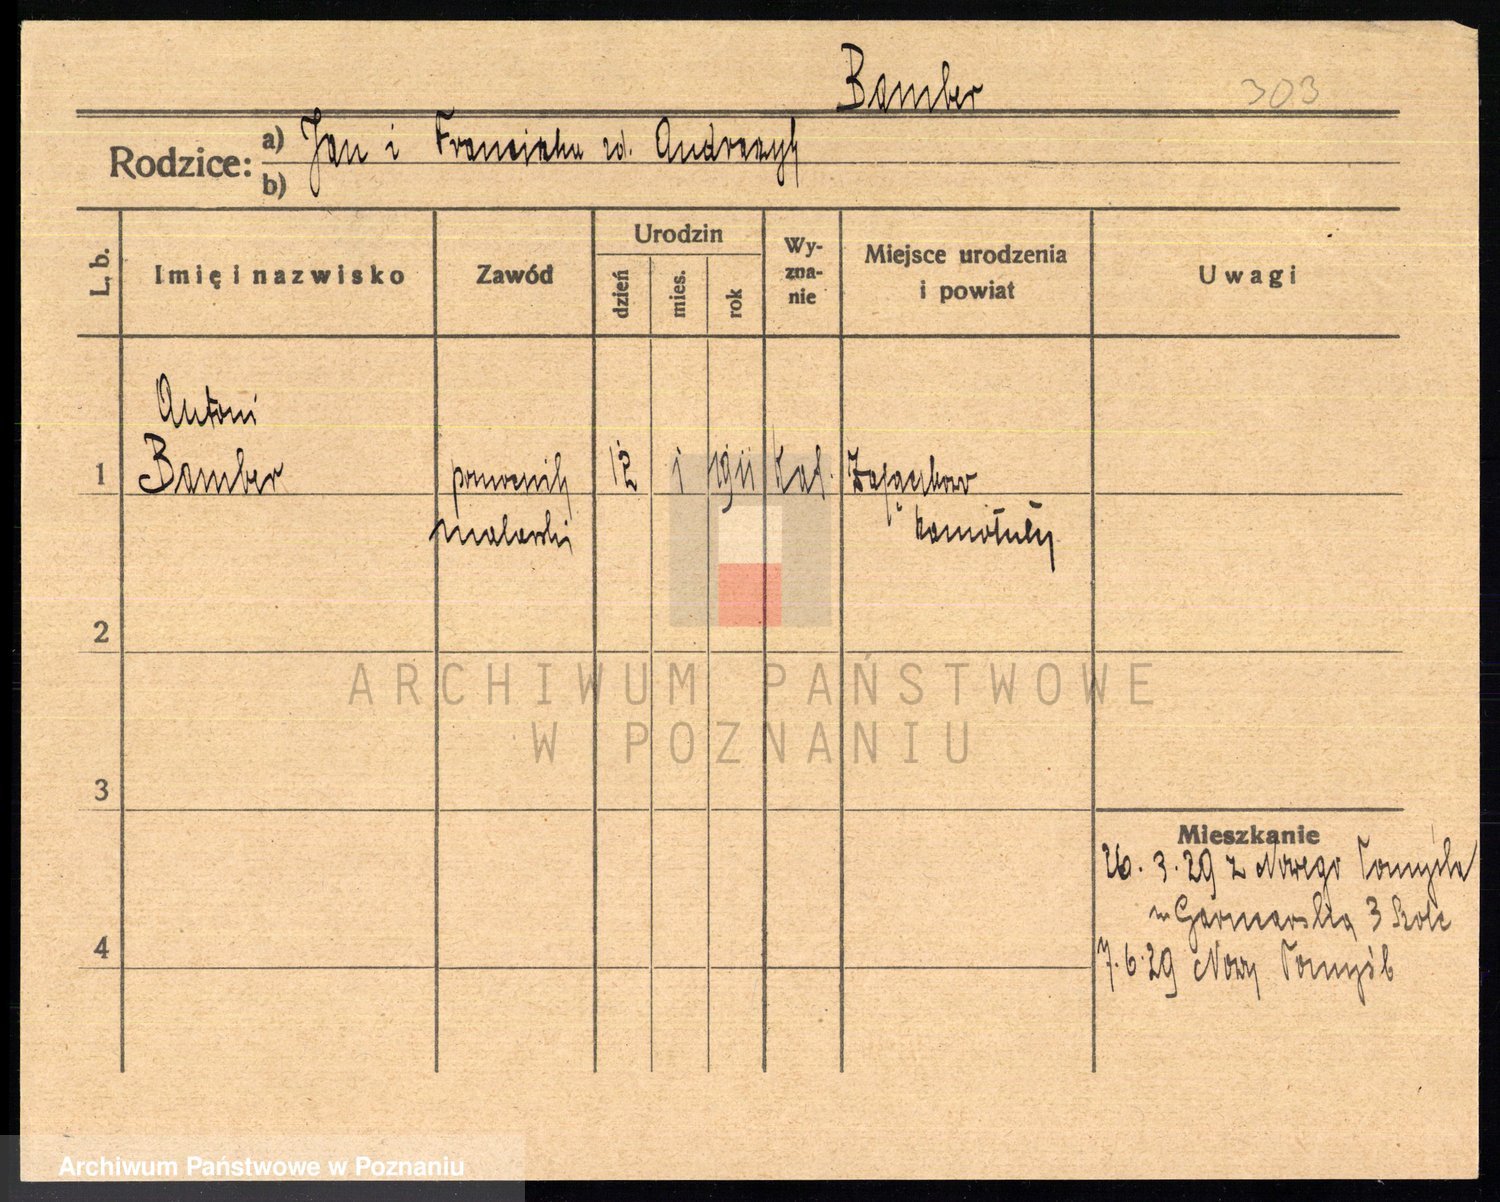 Bamber
303
Rodzice: a) Jan i Franciszka zd. Andrzejh
b)
L. b.
Imię i nazwisko
Zawód
Urodzin
dzień
mies.
rok
Wy-
zna-
nie
Miejsce urodzenia
i powiat
Uwagi
Antoni
1 Bamber pomocnik 12 1 1911 kat. Zajączkowo
malarski
2
ARCHIWUM PAŃSTWOWE
W POZNANIU
3
Mieszkanie
26. 3. 29 z Nowego Tomyśla
Garbarska 3
4
7. 6. 29 Nowy Tomyśl
Archiwum Państwowe w Poznaniu